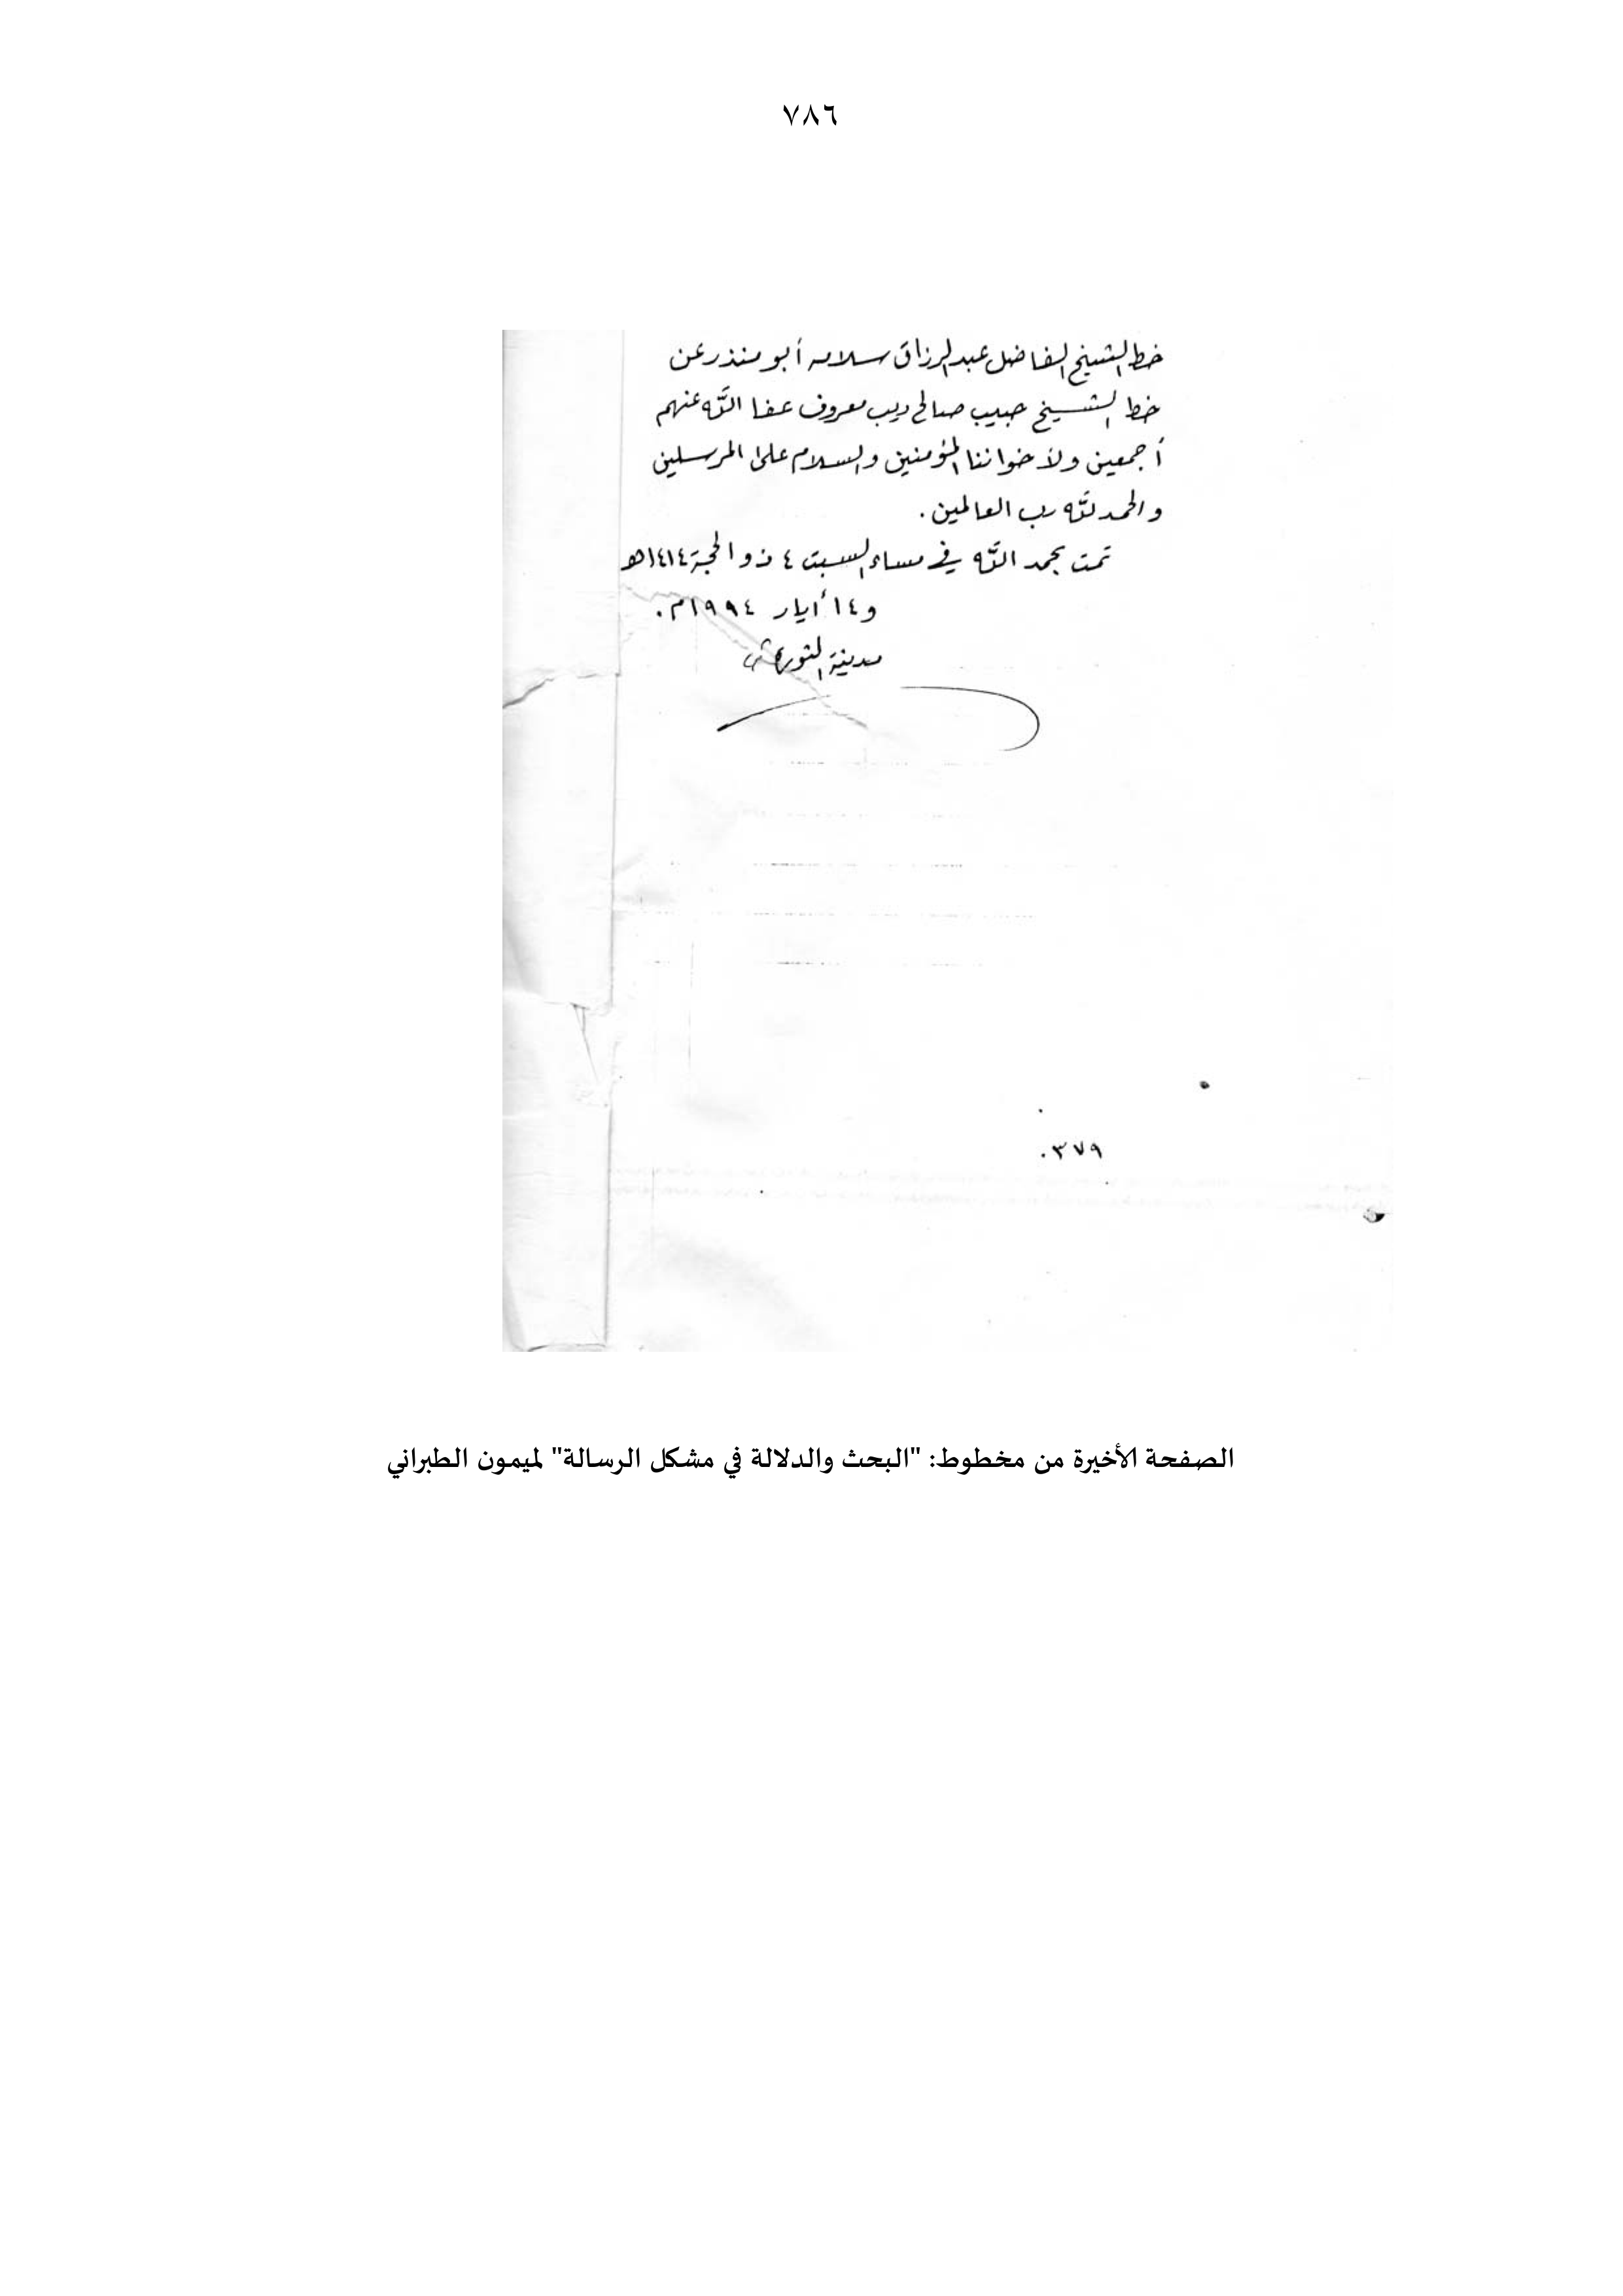 ٧٨٦
خط الشيخ الفاضل عبد الرزاق سلامه أبو منذر عن
خط الشيخ حبيب صالح ديب معروف عفا الله عنهم
أجمعين ولأخواننا المؤمنين والسلام على المرسلين
والحمد لله رب العالمين .
تمت بحمد الله في مساء السبت ٤ ذو الحجة ١٤١٤هـ
و١٤ أيار ١٩٩٤م.
مدينة الثوره
٣٧٩.
الصفحة الأخيرة من مخطوط: "البحث والدلالة في مشكل الرسالة" لميمون الطبراني